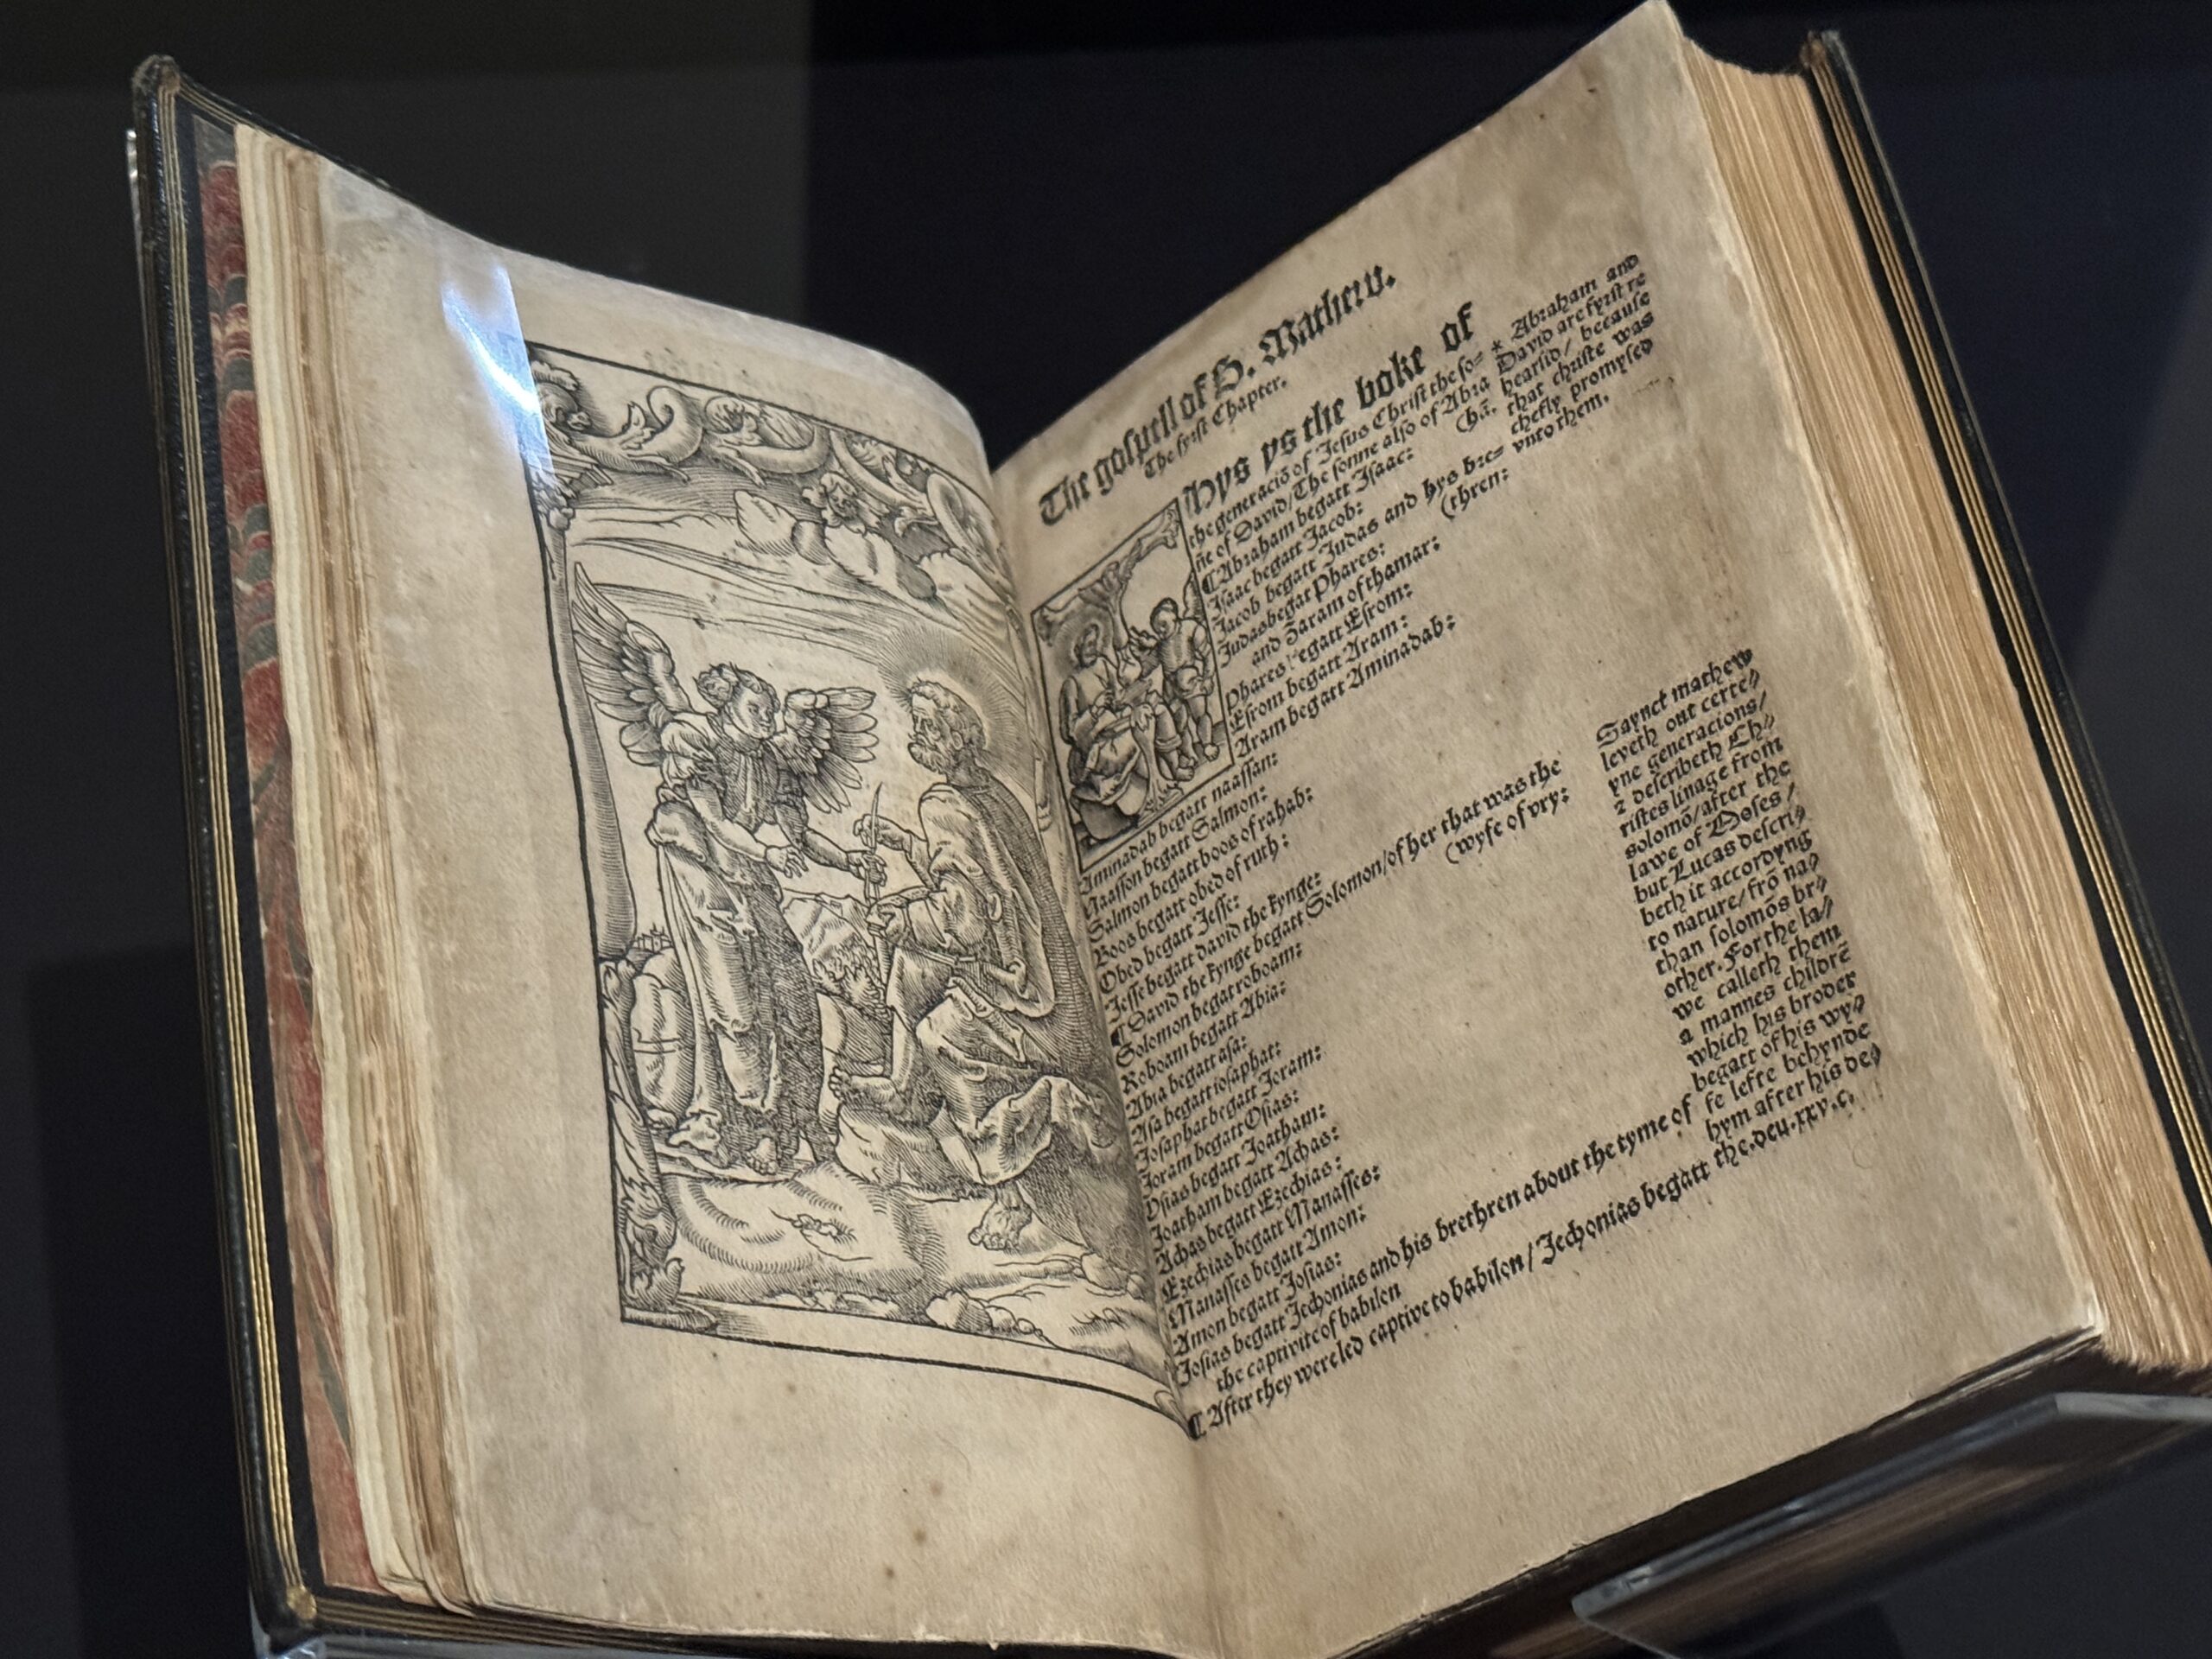 The gospell of S. Mathew.
The fyrst Chapter.
Hys ys the boke of
the generaciõ of Jesus Christ the so=
ñe of David/The sonne also of Abra
hã.
¶Abraham begatt Isaac:
Isaac begatt Jacob:
Jacob begatt Judas and hys bre=
(thren:
Judas begat Phares:
and Zaram of thamar:
Phares begatt Esrom:
Esrom begatt Aram:
Aram begatt Aminadab:
Aminadab begatt naassan:
Naasson begatt Salmon:
Salmon begatt boos of rahab:
Boos begatt obed of ruth:
Obed begatt Jesse:
Jesse begatt david the kynge:
¶David the kynge begatt Solomon/of her that was the
(wyfe of vry:
Solomon begat roboam:
Roboam begatt Abia:
Abia begatt asa:
Asa begatt iosaphat:
Josaphat begatt Joram:
Joram begatt Osias:
Osias begatt Joatham:
Joatham begatt Achas:
Achas begatt Ezechias:
Ezechias begatt Manasses:
Manasses begatt Amon:
Amon begatt Josias:
Josias begatt Jechonias and his brethren about the tyme of
the captivite of babilon
¶After they were led captive to babilon/Jechonias begatt
* Abraham and
David are fyrst re
hearsid/ because
that christe was
chefly promysed
vnto them.
Saynct mathew
leveth out certe⸗
yne generacions/
⁊ describeth Ch⸗
ristes linage from
solomõ/after the
lawe of Moses/
but Lucas descri⸗
beth it accordyng
to nature/frõ na⸗
than solomõs br⸗
other. For the la⸗
we calleth them
a mannes childrẽ
which his broder
begatt of his wy⸗
fe lefte behynde
hym after his de⸗
the.deu.xxv.c.